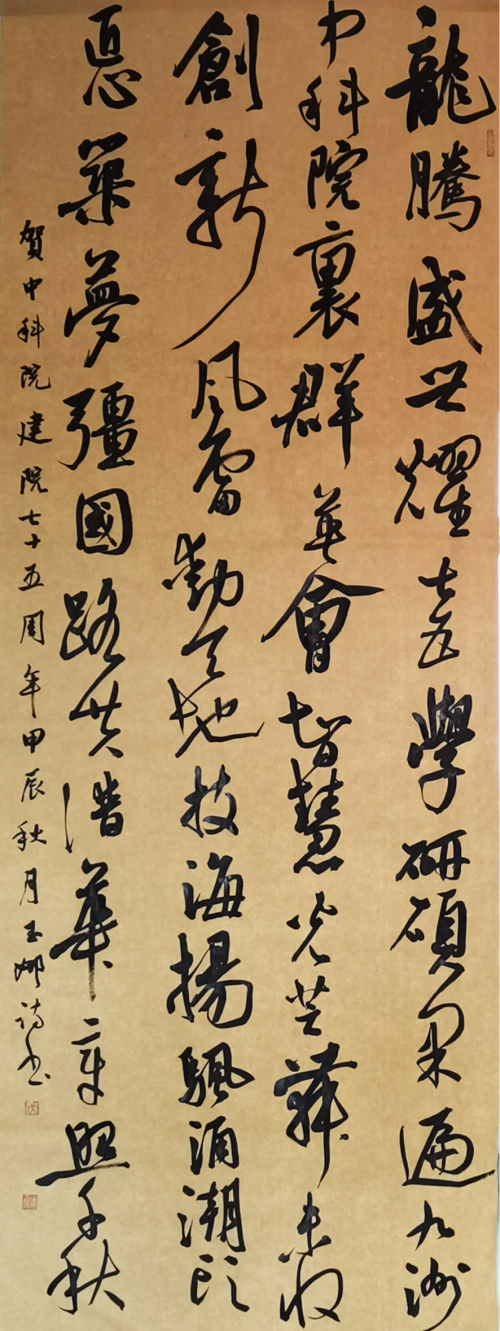 龍騰盛世耀七五學研碩果遍九洲
中科院裏群英會智慧光芒未收
創新風雷動天地技海揚颿涌潮頭
匠心築夢彊國路共譜華章照千秋
賀中科院建院七十五周年甲辰秋月玉娜詩書